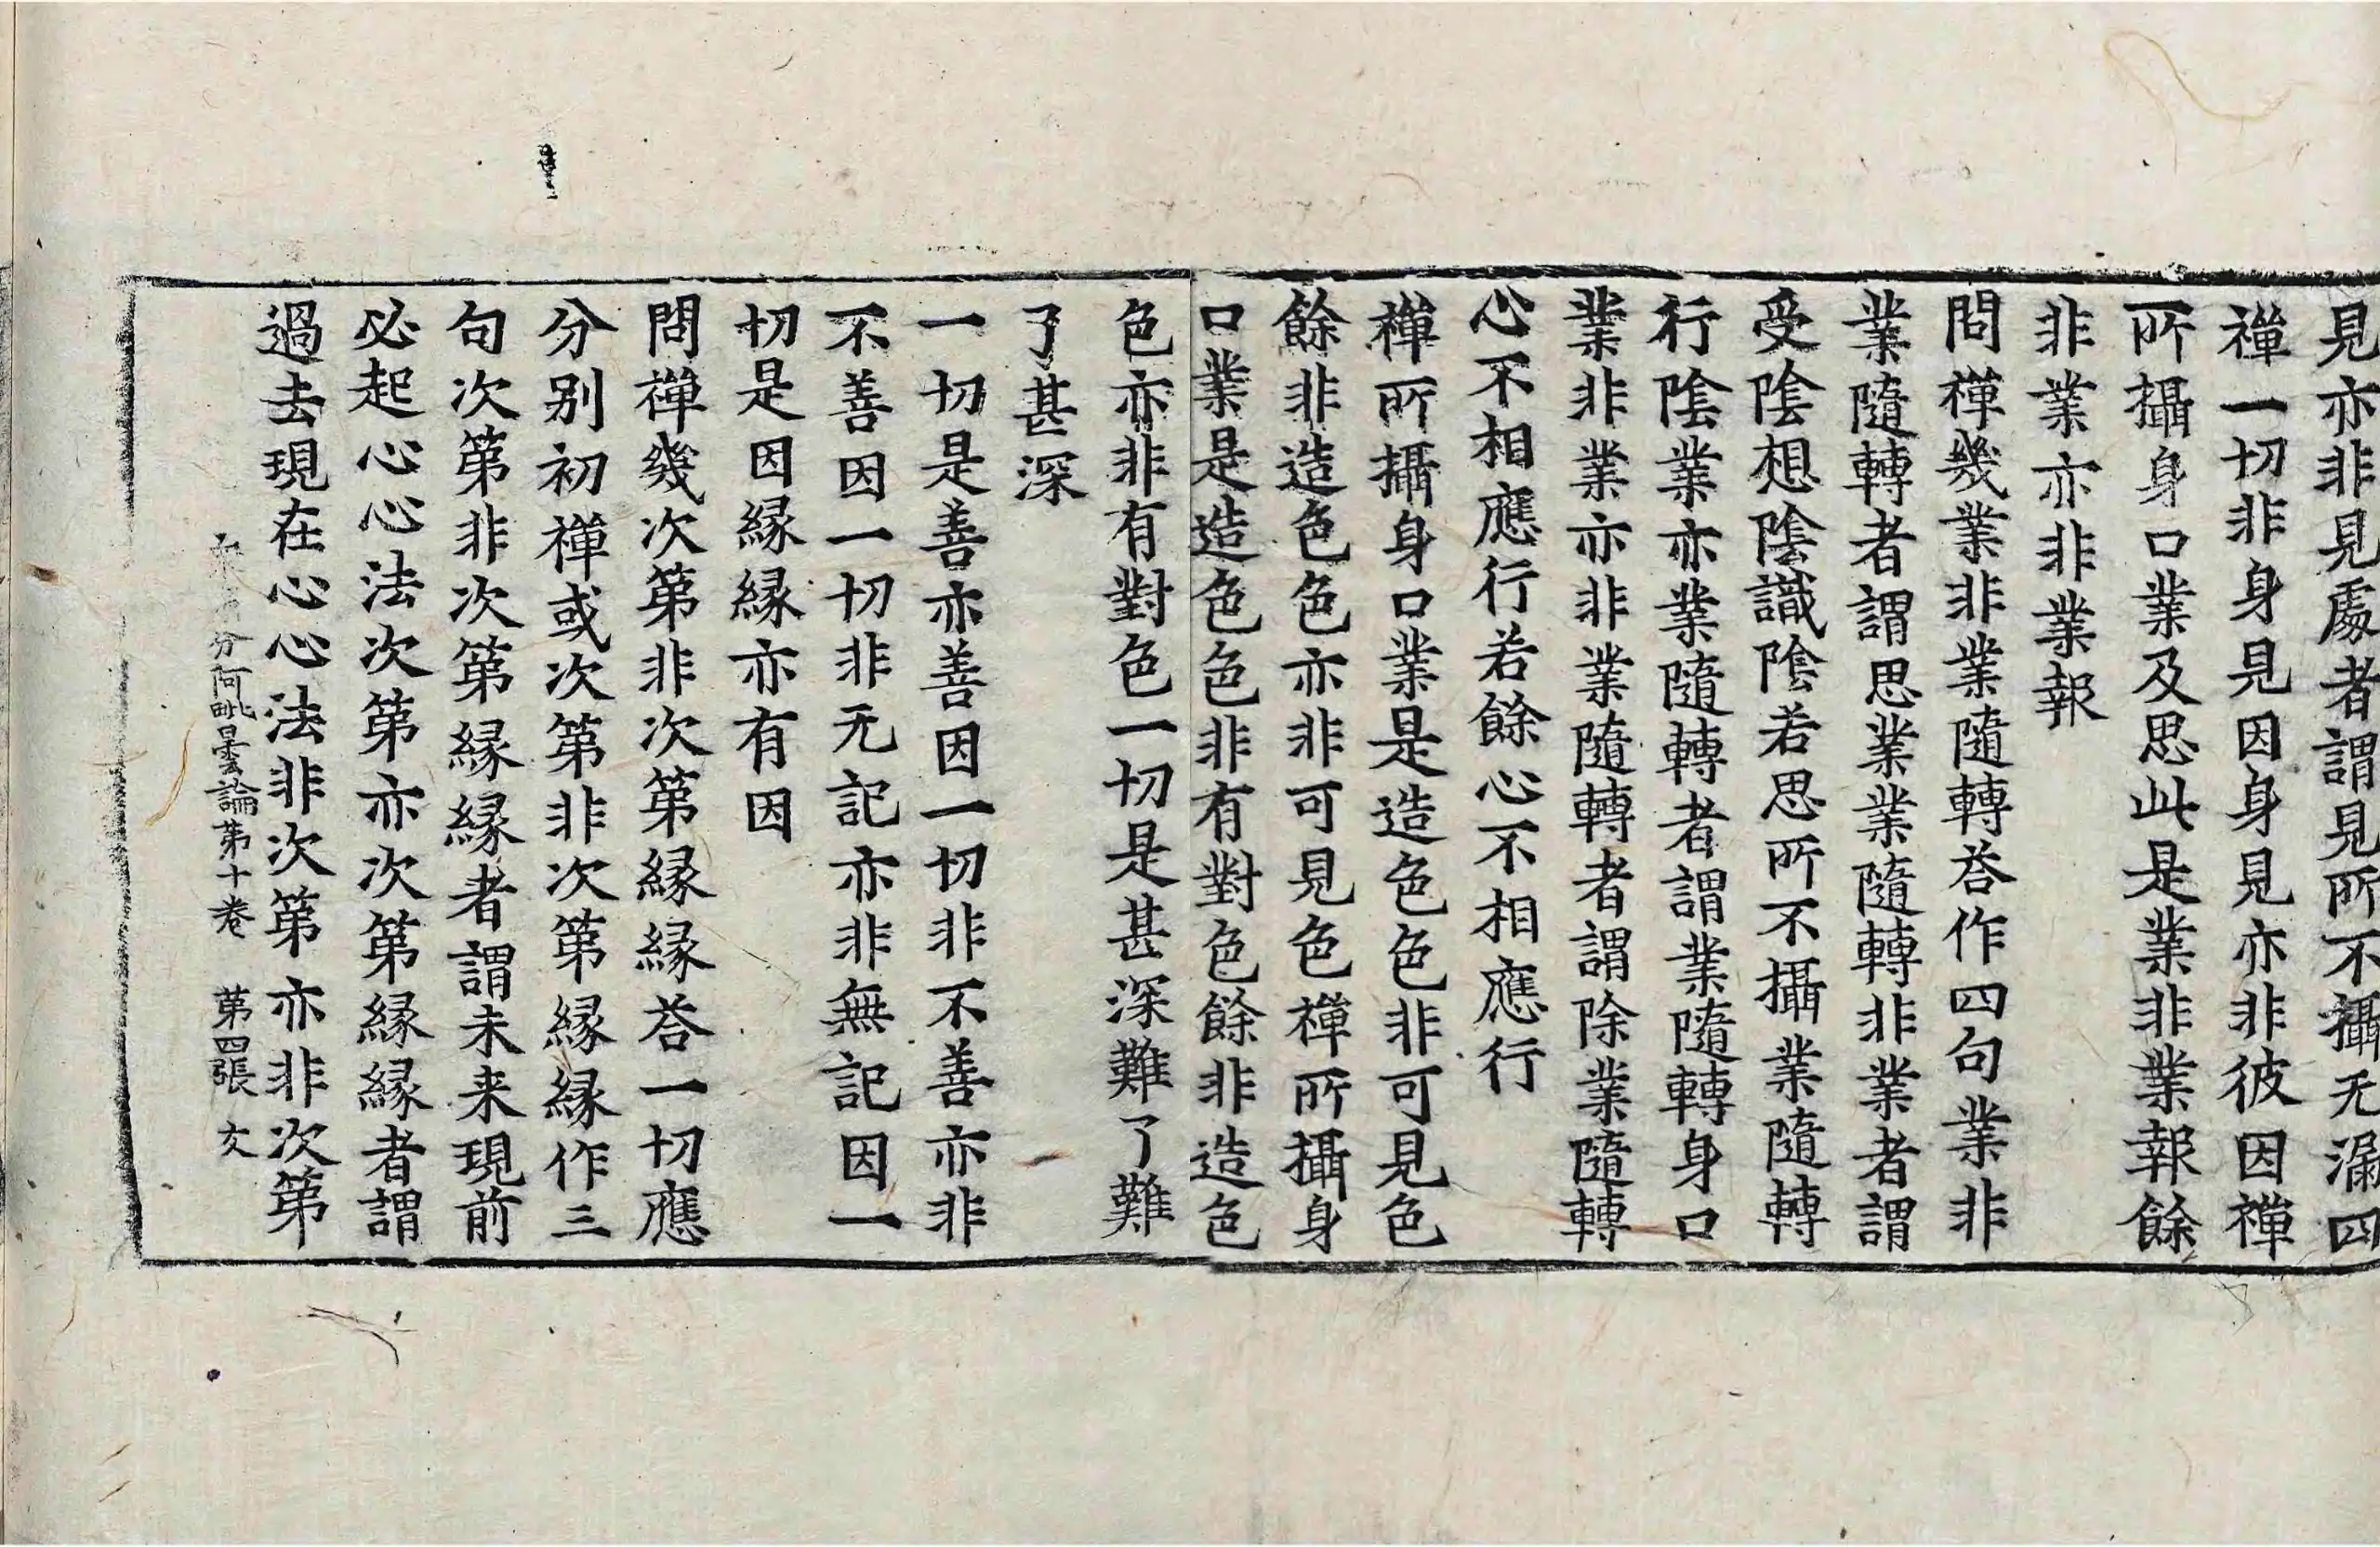 見亦非見處者謂見所不攝无漏四
禪一切非身見因身見亦非彼因禪
所攝身口業及思此是業非業報餘
非業亦非業報
問禪幾業非業隨轉荅作四句業非
業隨轉者謂思業業隨轉非業者謂
受陰想陰識陰若思所不攝業隨轉
行陰業亦業隨轉者謂業隨轉身口
業非業亦非業隨轉者謂除業隨轉
心不相應行若餘心不相應行
禪所攝身口業是造色色非可見色
餘非造色色亦非可見色禪所攝身
口業是造色色非有對色餘非造色
色亦非有對色一切是甚深難了難
了甚深
一切是善亦善因一切非不善亦非
不善因一切非无記亦非無記因一
切是因緣緣亦有因
問禪幾次第非次第緣緣荅一切應
分別初禪或次第非次第緣緣作三
句次第非次第緣緣者謂未来現前
必起心心法次第亦次第緣緣者謂
過去現在心心法非次第亦非次第
分阿毗曇論第十卷 第四張 文